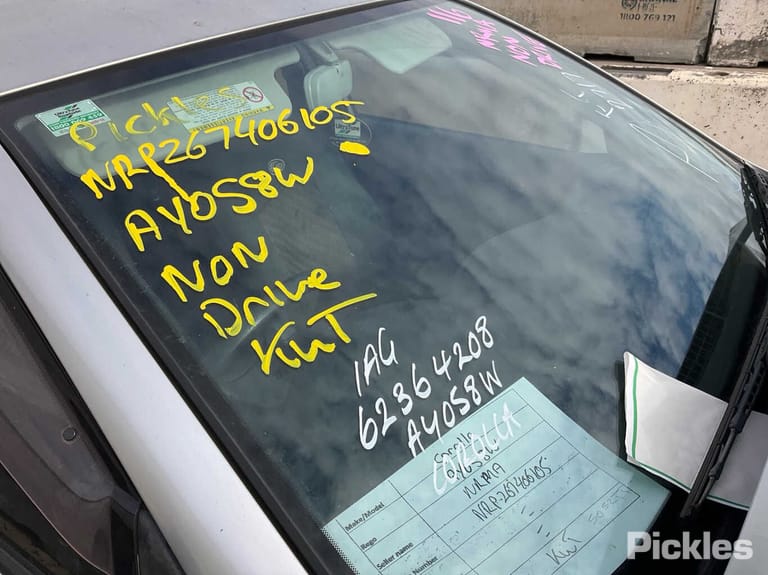 1800 769 121
116
NON
Pickles
NRP267406105
AY058W
NON
Drive
KWT
IAG
62364208
AY058W
COROLLA
Make/Model
Corolla
Rego
AY058W
Seller name
NRMA
Number
NRP267406105
KWT
Pickles